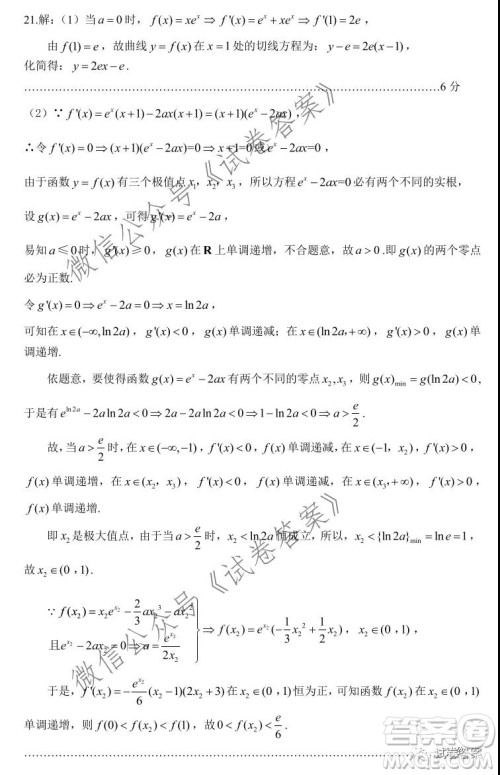 21.解:（1）当 a=0 时，f(x)=xeˣ⇒f'(x)=eˣ+xeˣ⇒f'(1)=2e，
由 f(1)=e，故曲线 y=f(x) 在 x=1 处的切线方程为：y-e=2e(x-1)，
化简得：y=2ex-e.
6 分
（2）∵ f'(x)=eˣ(x+1)-2ax(x+1)=(x+1)(eˣ-2ax)，
∴令 f'(x)=0⇒(x+1)(eˣ-2ax)=0⇒x+1=0或eˣ-2ax=0，
由于函数 y=f(x) 有三个极值点 x₁，x₂，x₃，所以方程 eˣ-2ax=0 必有两个不同的实根，
设 g(x)=eˣ-2ax，可得 g'(x)=eˣ-2a，
易知 a≤0 时，g'(x)≥0，g(x) 在 R 上单调递增，不合题意，故 a>0 .即 g(x) 的两个零点
必为正数.
令 g'(x)=0⇒eˣ-2a=0⇒x=ln2a，
可知在 x∈(-∞,ln2a)，g'(x)<0，g(x) 单调递减；在 x∈(ln2a，+∞)，g'(x)>0，g(x) 单
调递增.
依题意，要使得函数 g(x)=eˣ-2ax 有两个不同的零点 x₂,x₃，则 g(x)min=g(ln2a)<0，
于是有 e^(ln2a)-2aln2a<0⇒2a-2aln2a<0⇒1-ln2a<0⇒a>e/2.
故，当 a>e/2 时，在 x∈(-∞,-1)，f(x) 单调递减，在 x∈(-1，x₂)，f'(x)>0，
f(x) 单调递增，在 x∈(x₂，x₃)，f'(x)<0，f(x) 单调递减，在 x∈(x₃,+∞)，f'(x)>0，
f(x) 单调递增.
即 x₂ 是极大值点，由于当 a>e/2 时，x₂<ln2a 恒成立，所以，x₂<{ln2a}min=lne=1，
故 x₂∈(0，1).
∵ f(x₂)=x₂e^(x₂)-2/3ax₂³-ax₂²
且e^(x₂)-2ax₂=0⇒a=e^(x₂)/2x₂ }⇒f(x₂)=e^(x₂)(-1/3x₂²+1/2x₂)，x₂∈(0，1)，
于是，f'(x₂)=-e^(x₂)/6(x₂-1)(2x₂+3) 在 x₂∈(0，1) 恒为正，可知函数 f(x₂) 在 x₂∈(0，1)
单调递增，则 f(0)<f(x₂)<f(1)，故 0<f(x₂)<e/6.
微信公众号《试卷答案》
微信公众号《试卷答案》
试卷答案
答案圈
MXQE.COM